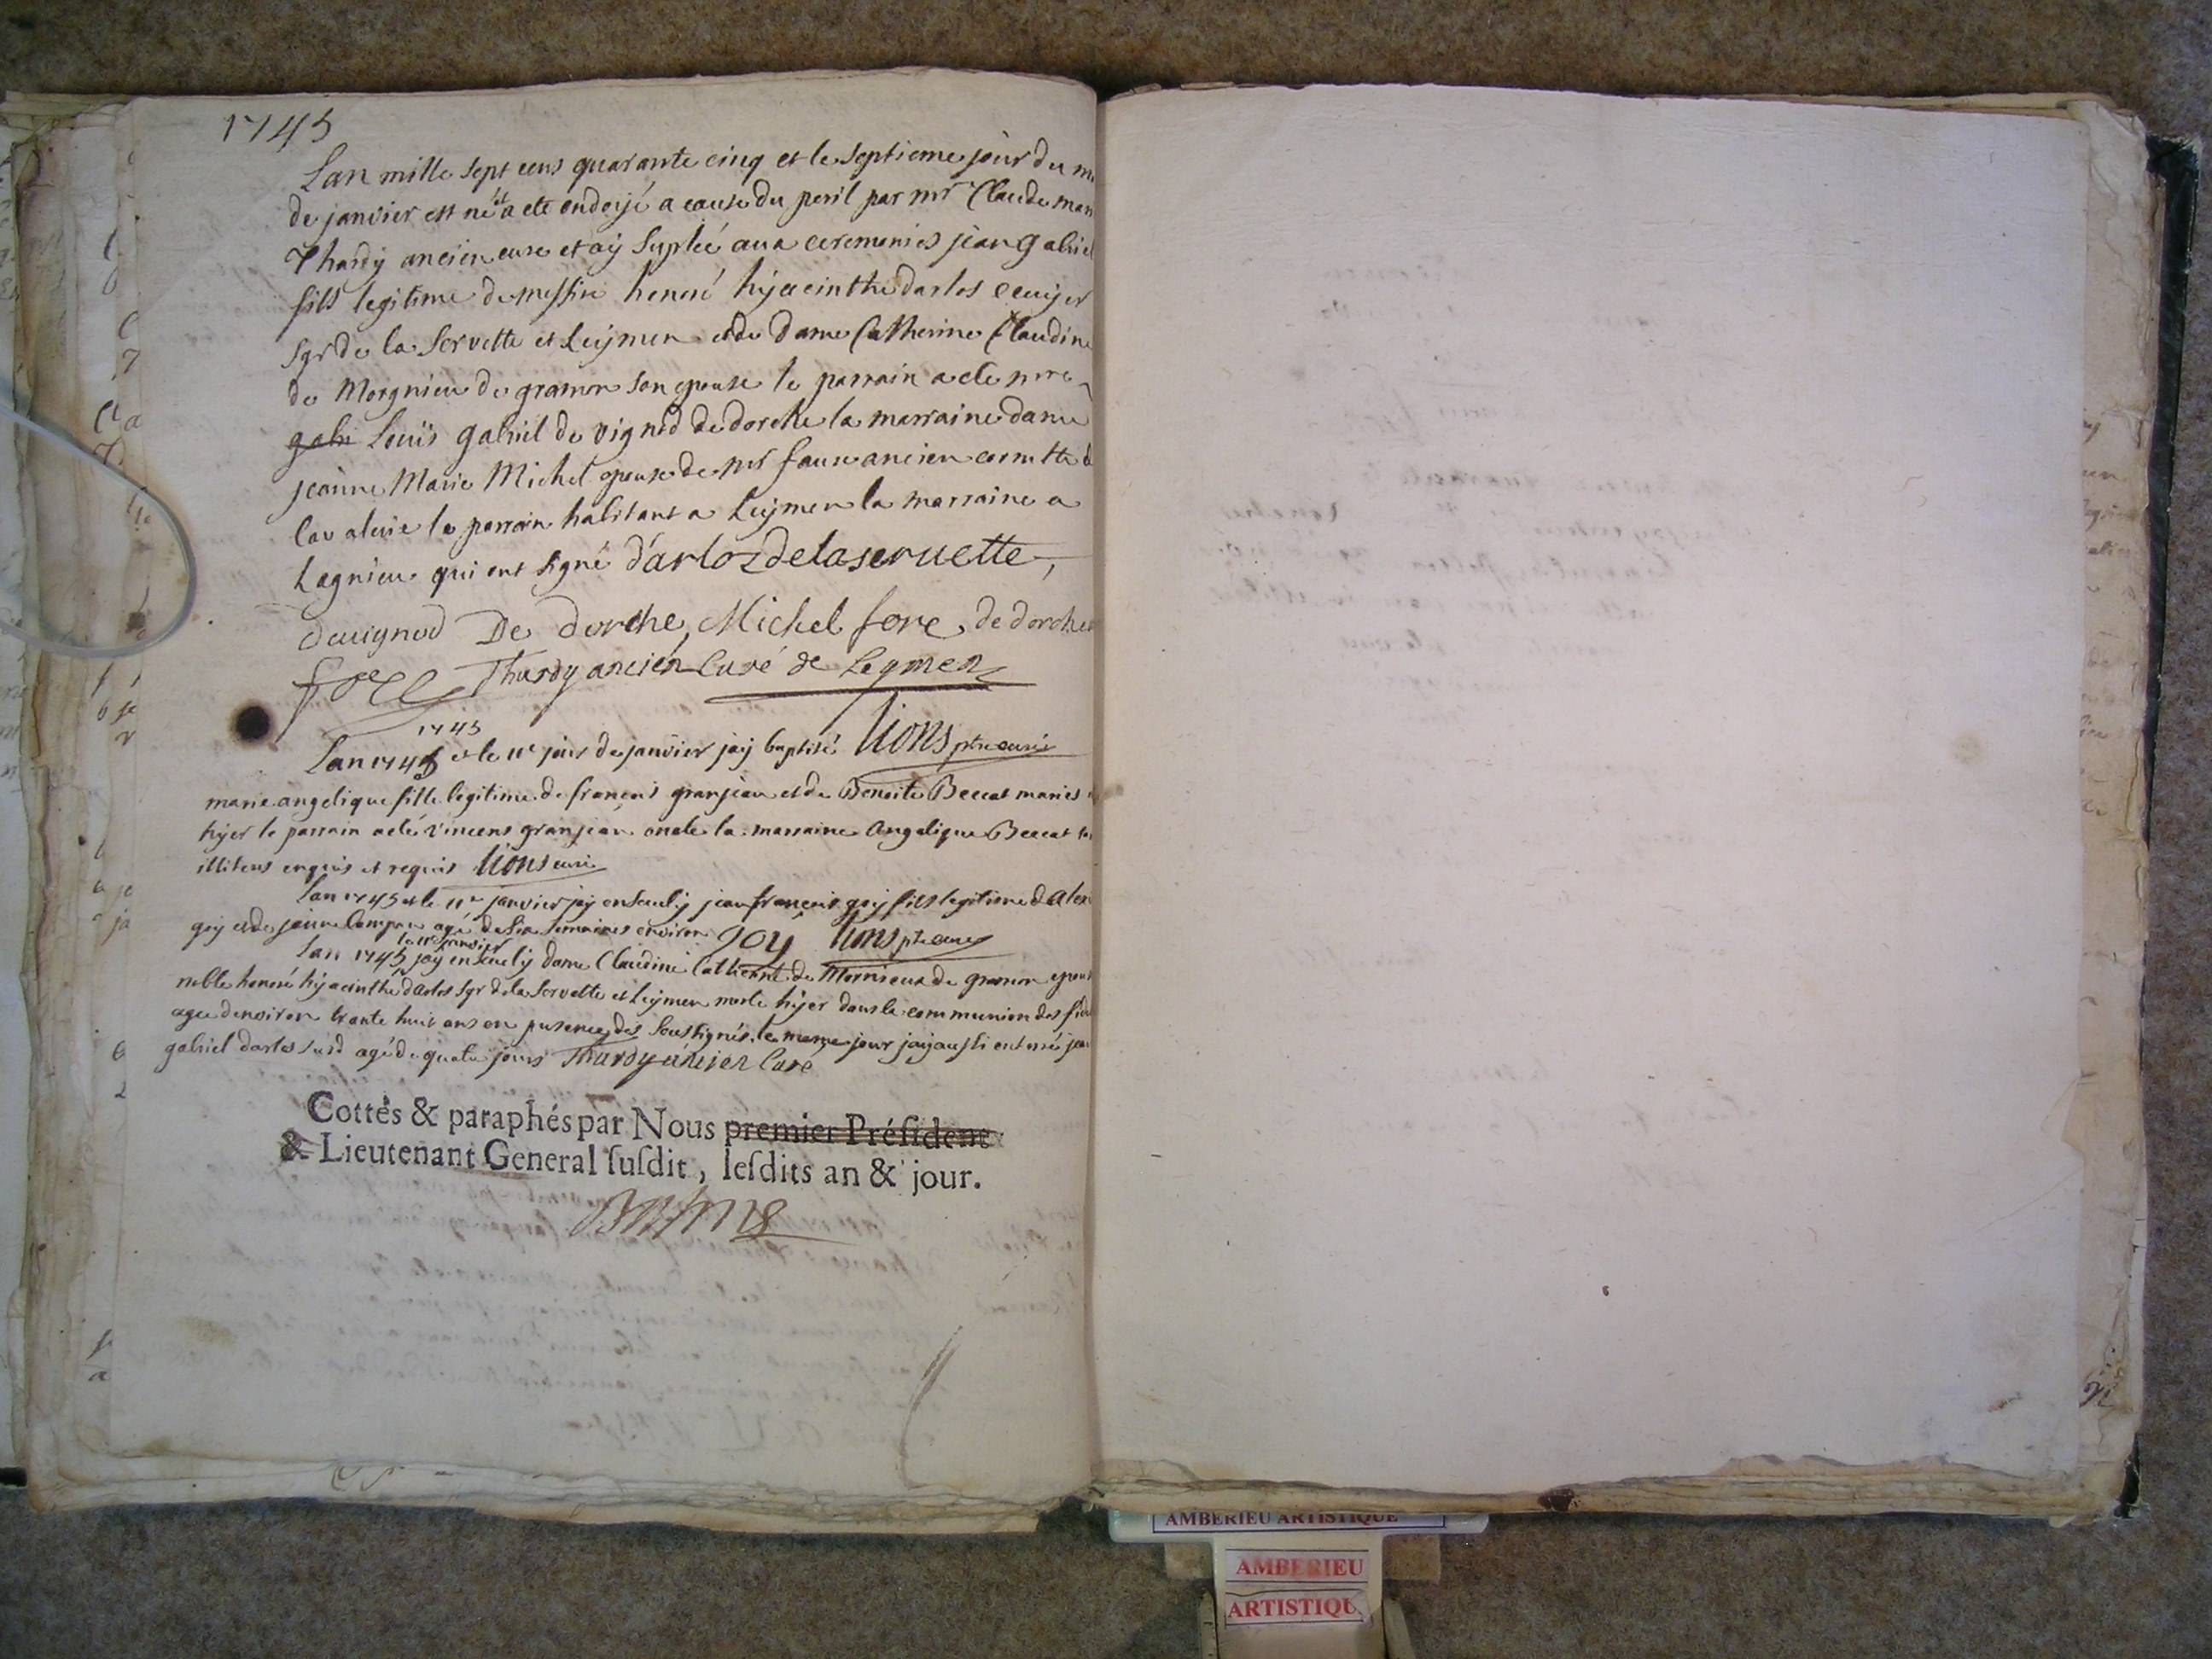 1745
Lan mille sept cens quarante cinq et le septieme jour du
de janvier est né et a eté ondoyé a cause du peril par mr Claude
Thardy ancien cure et aÿ suplée aux ceremonies jean gabriel
fils legitime de messire honoré hyacinthe darlos ecuijer
sgr de la Servette et Leÿmen et de Dame Catherine Claudine
de Morgnieu de gramon son epouse le parrain a ete mre
gabi Louïs gabriel de vignod de dorche la marraine dame
jeanne Marie Michel epouse de mr faure ancien cornette de
cavalerie le parrain habitant a Leÿmen la marraine a
Lagnieu qui ont signé d'arloz de la seruette,
deuignod De dorche, Michel fore, de dorche
fore Thardy ancien Curé de Leymen
Lions ptre curé
1745
Lan 1745 et le 11e jour de janvier jaÿ baptisé
marie angelique fille legitime de françois granjean et de Benoite Beccat mariés
hÿer le parrain a eté vincens granjean oncle la marraine Angelique Beccat
illiterés enquis et requis Lions curé
Lan 1745 et le 11e janvier jaÿ enseveli jean françois goÿ fils legitime d'
goÿ et de jeanne agé de six semaines environ goy Lions ptre curé
le 11e janvier
Lan 1745 jaÿ enseveli dame Claudine Catherine de Mornieux de gramon epouse
noble honoré hÿacinthe darlos sgr de la Servette et Leÿmen morte hÿer dans la communion des
agee denviron trante huit ans en presence des soussignés le meme jour jaÿ aussi enterré jean
gabriel darlos susd agé de quatre jours Thardy ancien Curé
Cottés & paraphés par Nous premier Président
& Lieutenant General susdit, lesdits an & jour.
AMBERIEU ARTISTIQUE
AMBERIEU
ARTISTIQU